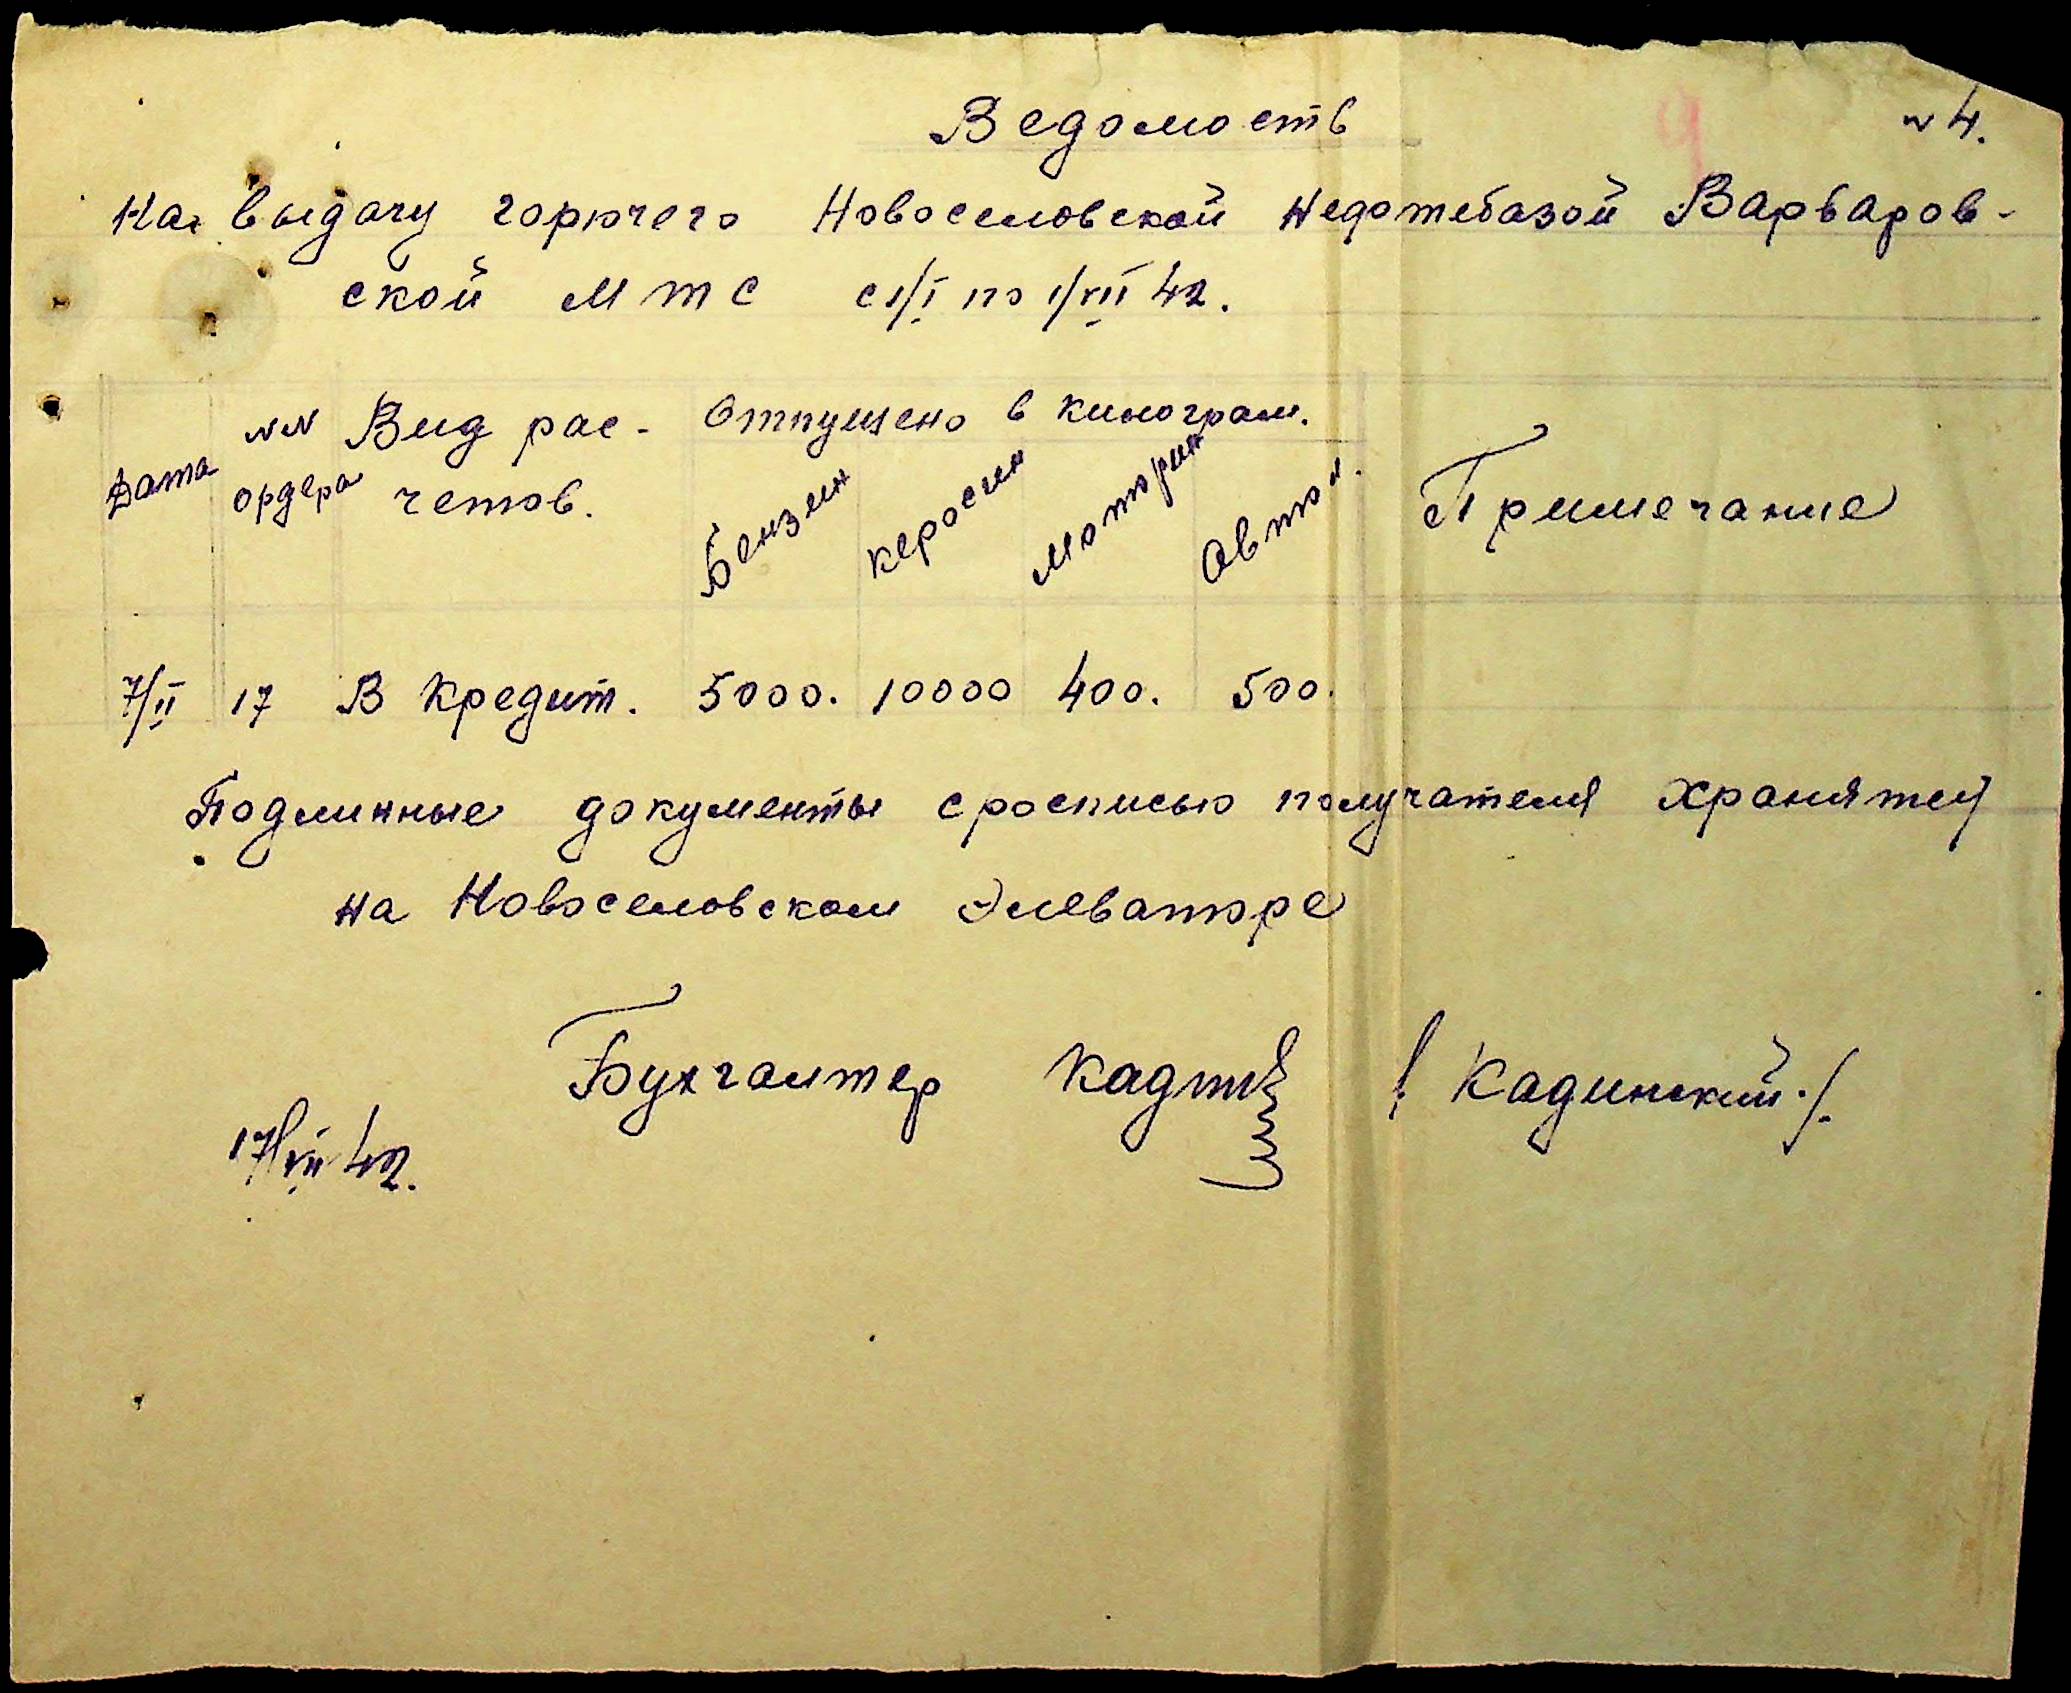 Ведомость
9
N 4.
На выдачу горючего Новоселовской Недотебазой Варваров-
ской МТС с 1/I по 1/VII 42.
Дата
NN ордера
Вид рас-
четов.
Отпущено в килограм.
Бензин
Керосин
Моторин
Автол.
Примечание
7/II 17 В Кредит. 5000. 10000 400. 500.
Подлинные документы с росписью получателя хранятся
на Новоселовском Элеваторе
Бухгалтер / Кадинский./.
17/VII 42.